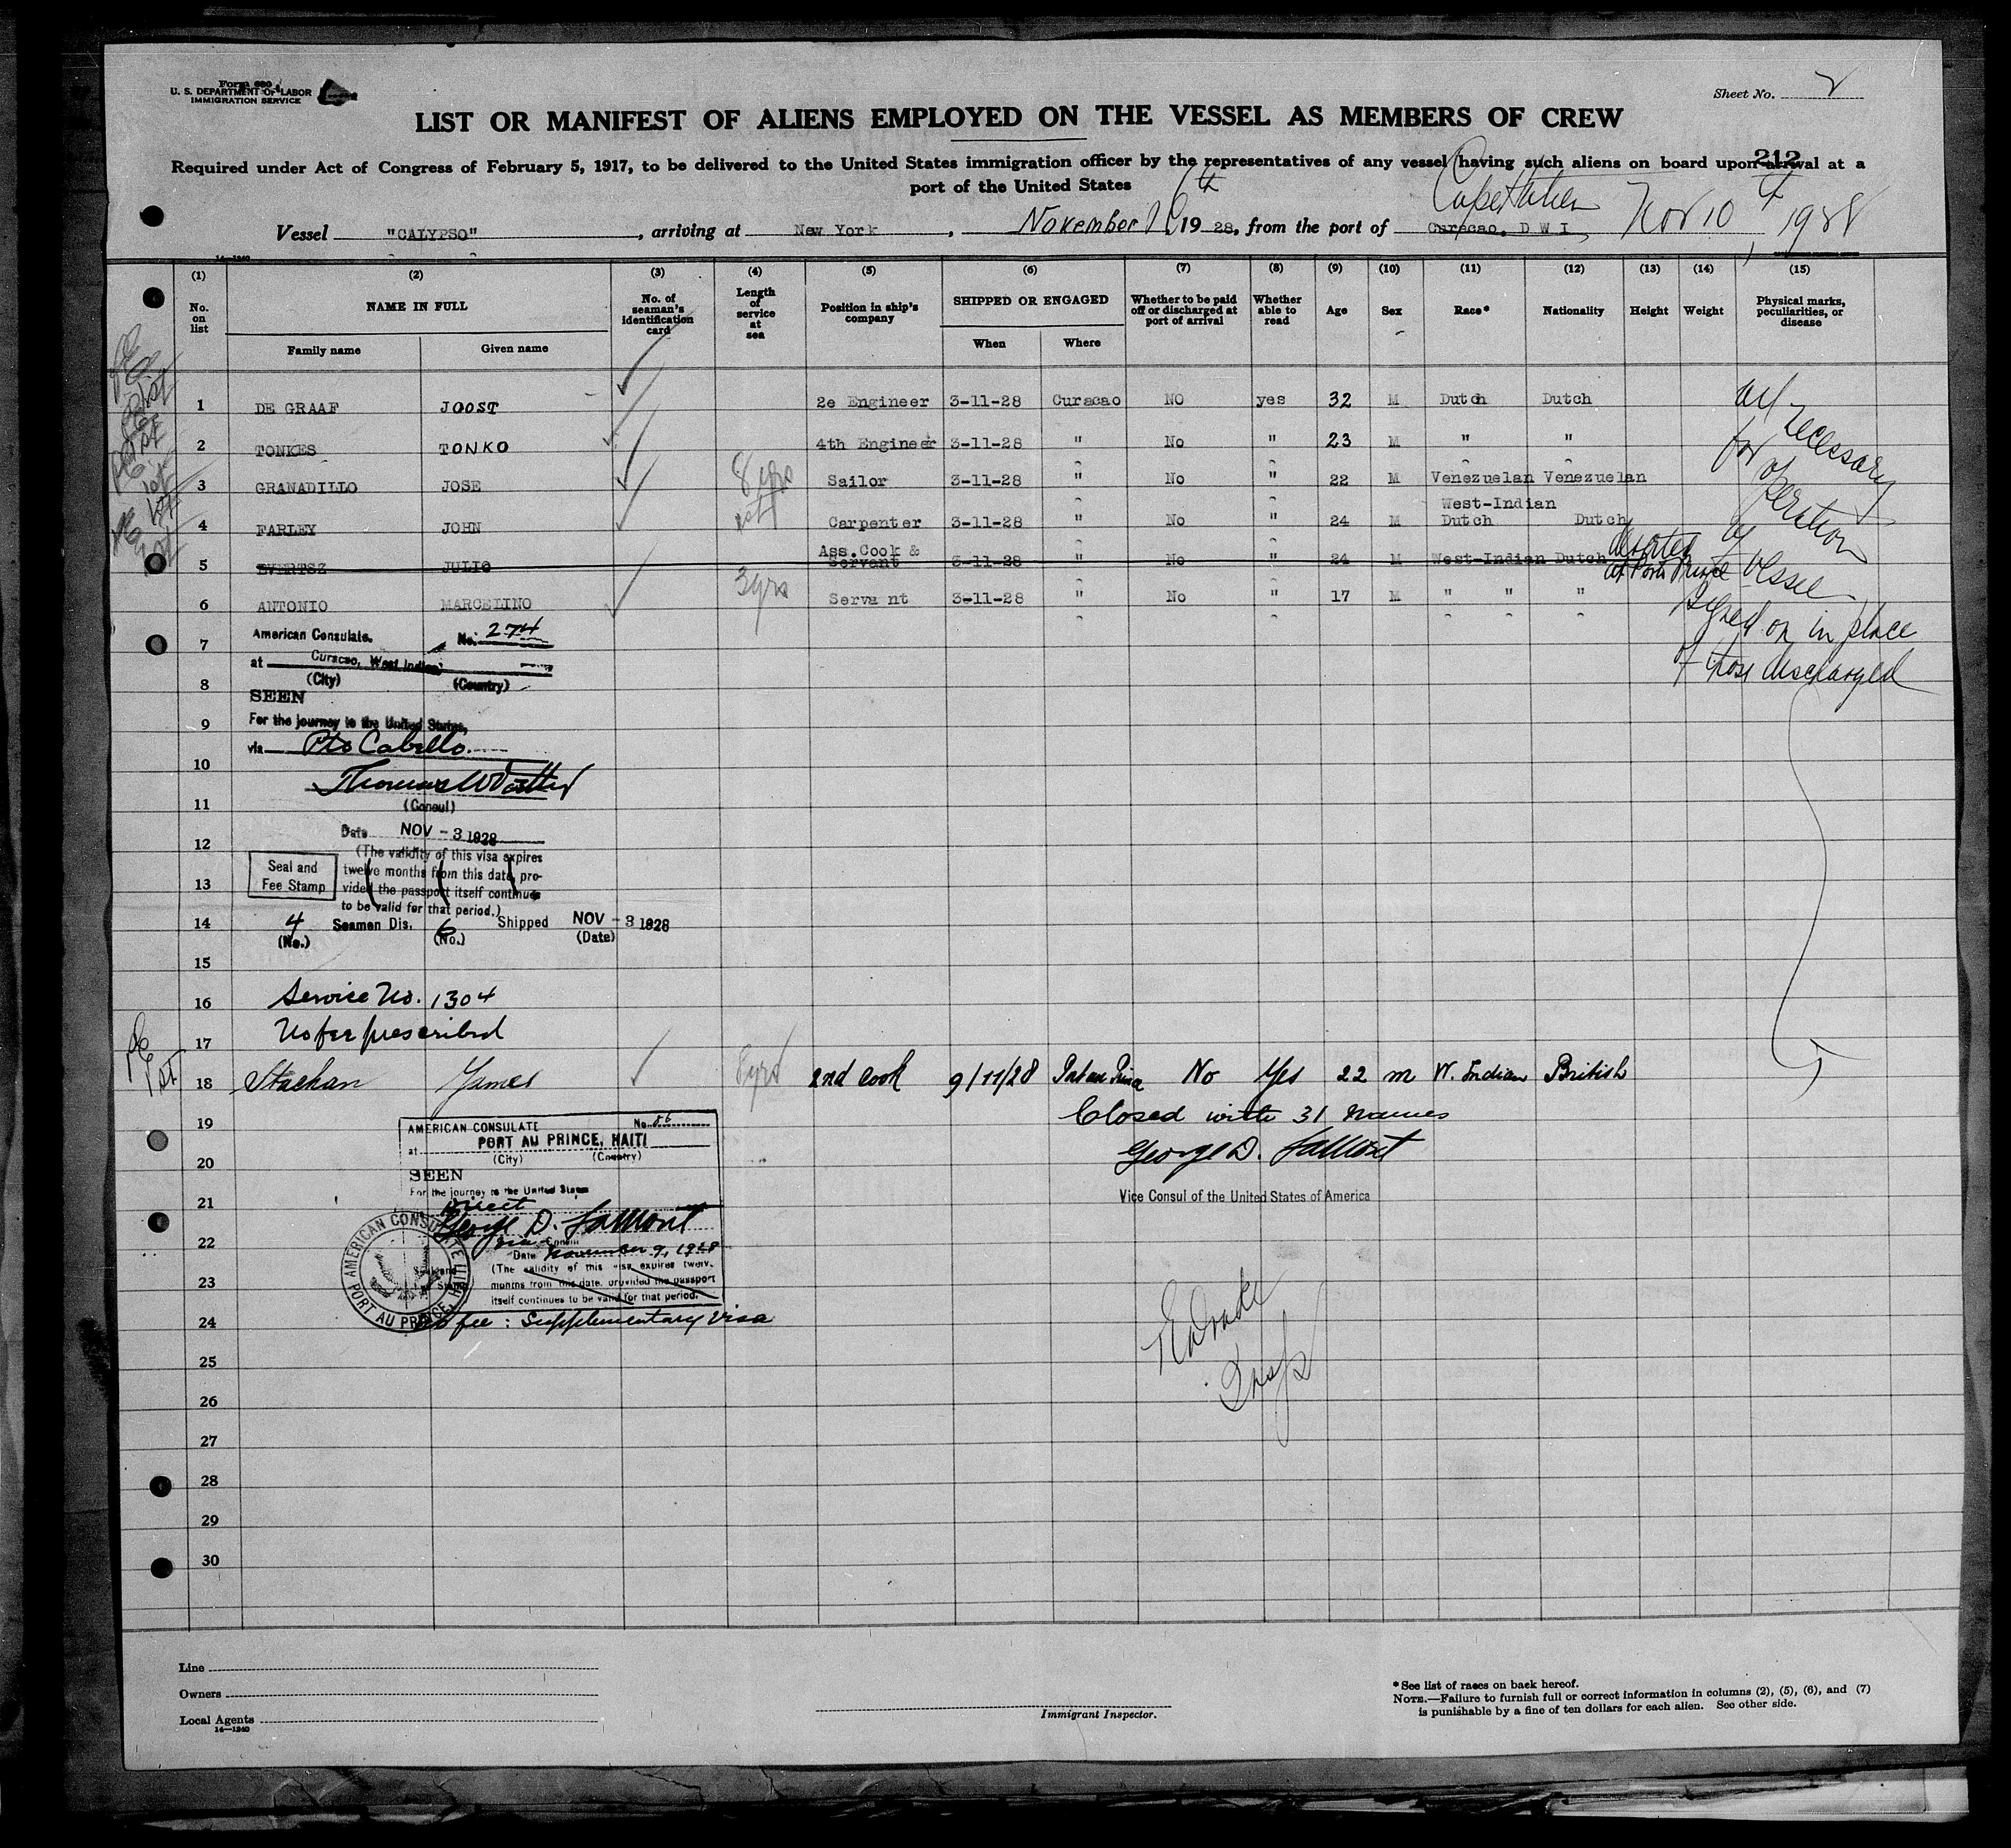 Form 680
U. S. DEPARTMENT OF LABOR
IMMIGRATION SERVICE
Sheet No. 2
LIST OR MANIFEST OF ALIENS EMPLOYED ON THE VESSEL AS MEMBERS OF CREW
212
Required under Act of Congress of February 5, 1917, to be delivered to the United States immigration officer by the representatives of any vessel having such aliens on board upon arrival at a
port of the United States
Vessel "CALYPSO", arriving at New York, November 16th 1928, from the port of Curacao, D W I, Nov 10 1928
14—1240
(1) (2) (3) (4) (5) (6) (7) (8) (9) (10) (11) (12) (13) (14) (15)
No. on list
NAME IN FULL
Family name Given name
No. of seaman's identification card
Length of service at sea
Position in ship's company
SHIPPED OR ENGAGED
When Where
Whether to be paid off or discharged at port of arrival
Whether able to read
Age Sex Race* Nationality Height Weight
Physical marks, peculiarities, or disease
1 DE GRAAF JOOST 2e Engineer 3-11-28 Curacao NO yes 32 M Dutch Dutch
2 TONKES TONKO 4th Engineer 3-11-28 " No " 23 M " "
3 GRANADILLO JOSE 8 yrs Sailor 3-11-28 " No " 22 M Venezuelan Venezuelan
West-Indian
4 FARLEY JOHN Carpenter 3-11-28 " No " 24 M Dutch Dutch
Ass. Cook &
5 EVERTSZ JULIO Servant 3-11-28 " No " 24 M West-Indian Dutch deserted at Port Prince
6 ANTONIO MARCELINO 3yrs Servant 3-11-28 " No " 17 M " " "
all necessary
for operation
of vessel
signed on in place
of those discharged
7 American Consulate, No. 274
at Curacao, West Indies
8 (City) (Country)
SEEN
9 For the journey to the United States,
via Pto Cabello.
10
11 (Consul)
12 Date NOV - 3 1928
(The validity of this visa expires
twelve months from this date, pro-
13 vided the passport itself continues
to be valid for that period.)
Seal and
Fee Stamp
14 4 Seamen Dis. 6 Shipped NOV - 3 1928
(No.) (No.) (Date)
15
16 Service No. 1304
17 No fee prescribed
18 Stachan James 8yrs 2nd cook 9/11/28 Port au Prince No Yes 22 m W. Indian British
19 Closed with 31 names
20 George D. LaMont
21 Vice Consul of the United States of America
AMERICAN CONSULATE No. 56
at PORT AU PRINCE, HAITI
(City) (Country)
SEEN
For the journey to the United States
Direct
George D. LaMont
22 Vice Consul
Date November 9, 1928
(The validity of this visa expires twelve
23 months from this date, provided the passport
itself continues to be valid for that period.)
AMERICAN CONSULATE PORT AU PRINCE, HAITI
24 No fee : Supplementary Visa
Insp
25
26
27
28
29
30
Line
Owners
Local Agents
14—1240
Immigrant Inspector.
*See list of races on back hereof.
NOTE.—Failure to furnish full or correct information in columns (2), (5), (6), and (7)
is punishable by a fine of ten dollars for each alien. See other side.